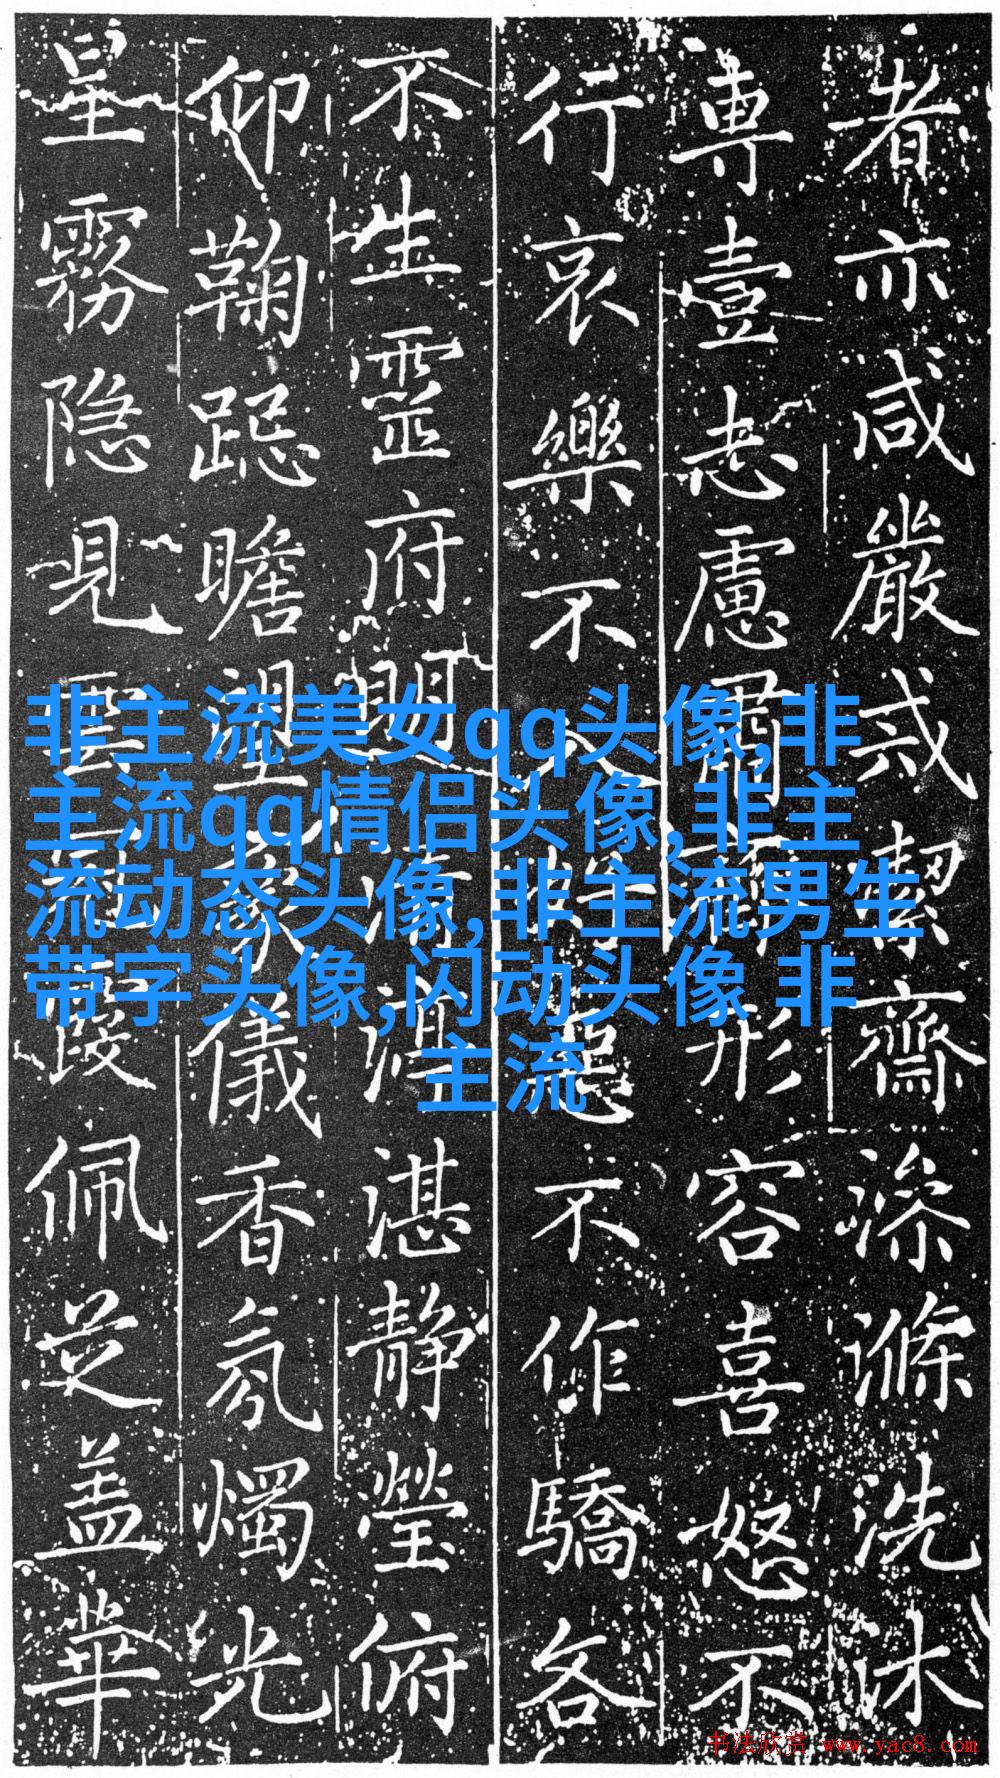 者亦咸嚴戒潔齋滌洗沐
専壹志慮肅齊形容喜怒不
行哀樂不入好惡不作驕各
不生靈府明清湛靜瑩俯
仰鞠跽瞻望象儀香氛燭光
星霧隐見雲佩芝盖華
非主流美女qq头像,非
主流qq情侣头像,非主
流动态头像,非主流男生
带字头像,闪动头像 非
主流
书法欣赏 www.yac8.com